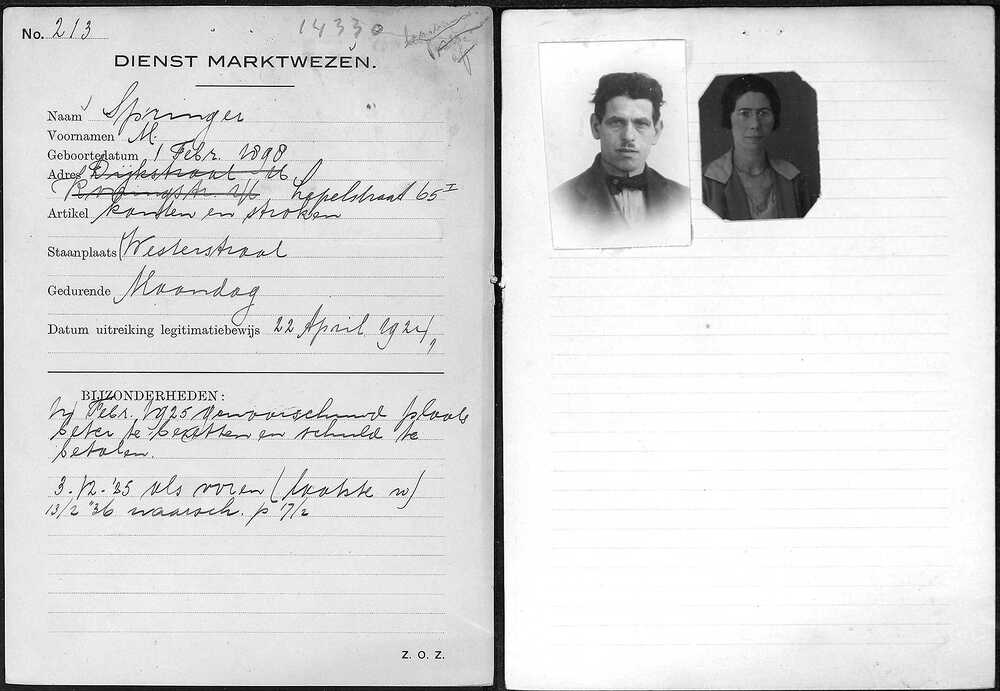 No. 213
14330
DIENST MARKTWEZEN.
Naam Springer
Voornamen M.
Geboortedatum 1 Febr. 1898
Adres Dijkstraat 16
Lepelstraat 65 I
Artikel kanten en stroken
Staanplaats Westerstraat
Gedurende Maandag
Datum uitreiking legitimatiebewijs 22 April 1921
BIJZONDERHEDEN:
Febr. 1925 gewaarschuwd plaats
beter te bezetten en schuld te
betalen.
3-12-'35 als voren (laatste w)
13/2 '36 waarsch. p 17/2
Z. O. Z.